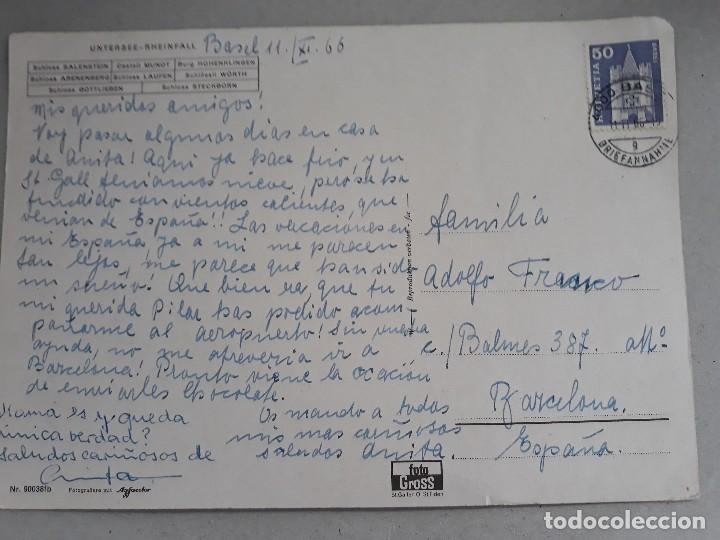 UNTERSEE-RHEINFALL
Basel 11./XI. 66
Schloss SALENSTEIN Castell MUNOT Burg HOHENKLINGEN
Schloss ARENENBERG Schloss LAUFEN Schlössli WÖRTH
Schloss GOTTLIEBEN Schloss STECKBORN
Mis queridos amigos!
Voy pasar algunos dias en casa
de Anita! Aqui ya hace frio, y en
St. Gall teniamos nieve, pero se ha
fundido con vientos calientes, que
venian de España!! Las vacaciones en
mi España ya a mi me parecen
tan lejos, me parece que han sido
un sueño! Que bien era que tu
mi querida Pilar has podido acom-
pañarme al aeropuerto! Sin vuestra
ayuda, no me atreveria ir a
Barcelona! Pronto viene la ocación
de enviarles Chocolate.
Os mando a todos
mis mas cariñosos
saludos Anita.
Mamá es y queda
unica verdad?
Saludos cariñosos de
Anita
50
HELVETIA
BASEL
4000 BASEL
BRIEFANNAHME
9
familia
Adolfo Franco
c./Balmes 387. At.º
Barcelona.
España.
Reproduktion verboten
foto
Gross
St.Gallen O St.Fiden
Nr. 900361b
Fotografiere auf Agfacolor
todocoleccion.net